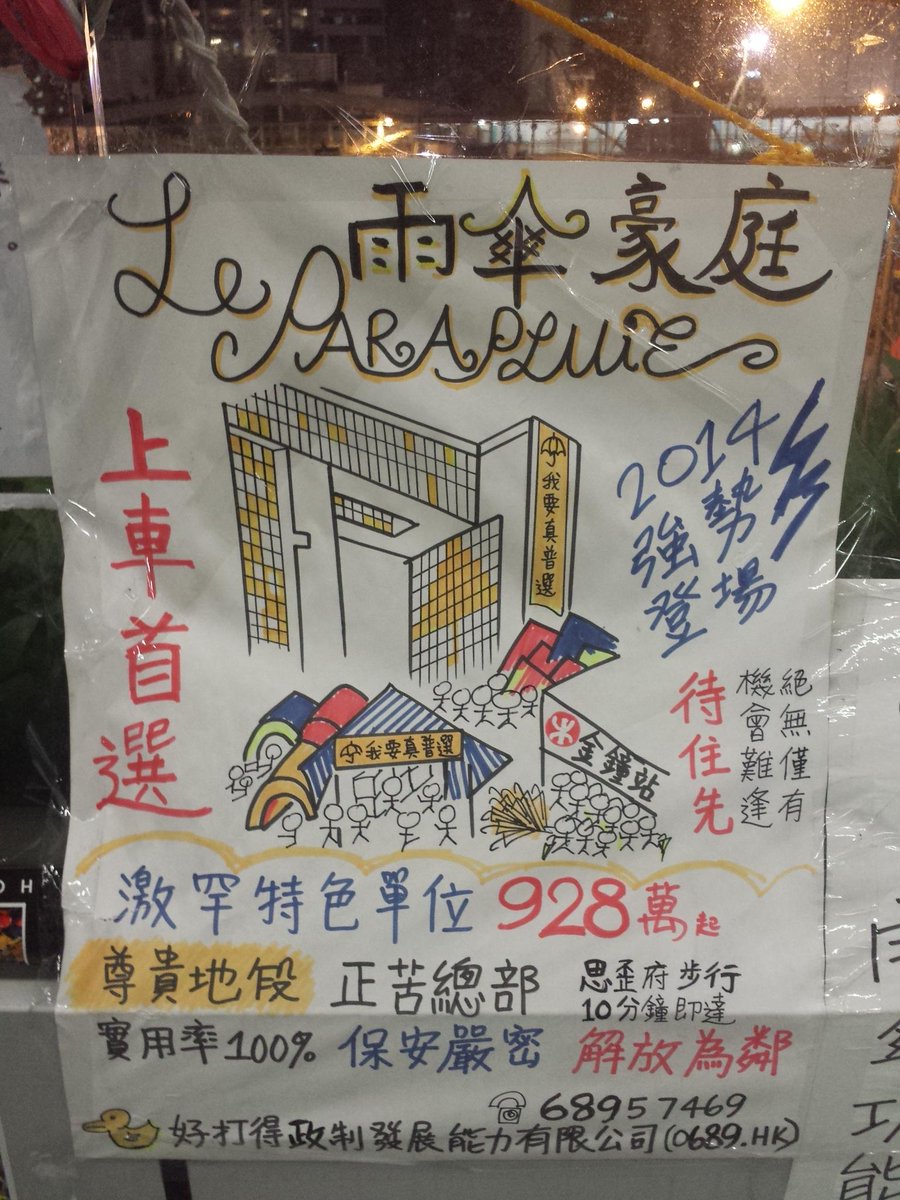 雨傘豪庭
Le PARAPLUIE
上車首選
2014
強勢
登場
我要真普選
我要真普選
金鐘站
待住先
絕無僅有
機會難逢
激罕特色單位 928萬起
尊貴地段 正苦總部 思歪府步行
10分鐘即達
實用率100% 保安嚴密 解放為鄰
68957469
好打得政制發展能力有限公司(0689.HK)